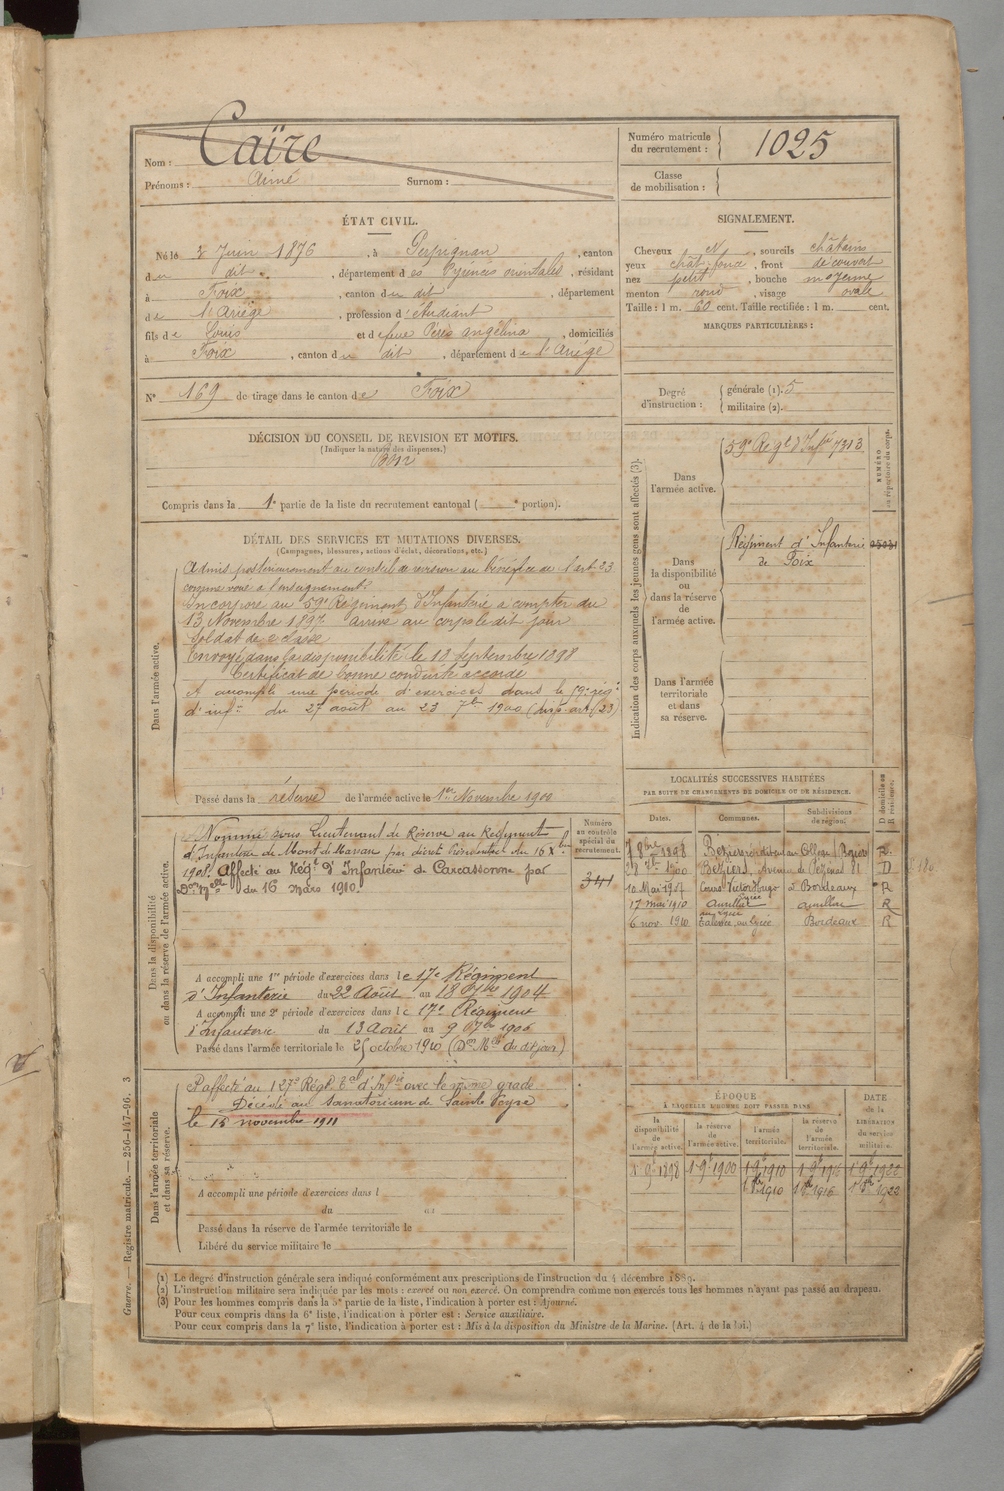 Nom : Caïre
Prénoms : Aimé Surnom :
Numéro matricule du recrutement : 1025
Classe de mobilisation :
ÉTAT CIVIL.
Né le 3 Juin 1876, à Perpignan, canton
du dit, département des Pyrénées orientales, résidant
à Foix, canton du dit, département
de l'Ariège, profession d'étudiant
fils de Louis et de feue Péres angélina, domiciliés
à Foix, canton du dit, département de l'Ariége
N° 169 de tirage dans le canton de Foix
SIGNALEMENT.
Cheveux N, sourcils châtains
yeux chât. foncé, front découvert
nez petit, bouche moyenne
menton rond, visage ovale
Taille : 1 m. 60 cent. Taille rectifiée : 1 m. cent.
MARQUES PARTICULIÈRES :
Degré d'instruction : générale (1). 5
militaire (2).
DÉCISION DU CONSEIL DE REVISION ET MOTIFS.
(Indiquer la nature des dispenses.)
Bon
Compris dans la 1e partie de la liste du recrutement cantonal ( e portion).
DÉTAIL DES SERVICES ET MUTATIONS DIVERSES.
(Campagnes, blessures, actions d'éclat, décorations, etc.)
Dans l'armée active.
Admis postérieurement au conseil de revision au bénéfice de l'art. 23
comme voué à l'enseignement.
Incorporé au 59e Régiment d'Infanterie à compter du
13 Novembre 1897 Arrivé au corps le dit jour
Soldat de 2e classe
Envoyé dans la disponibilité le 18 Septembre 1898
Certificat de bonne conduite accordé
A accompli une période d'exercices dans le 59e rég.
d'infie du 27 août au 23 7bre 1900 (disp. art. 23)
Passé dans la réserve de l'armée active le 1er Novembre 1900
Indication des corps auxquels les jeunes gens sont affectés (3).
NUMÉRO au répertoire du corps.
Dans l'armée active.
59e Regt d'Infie 7313
Dans la disponibilité ou dans la réserve de l'armée active.
Régiment d'Infanterie
de Foix
Dans l'armée territoriale et dans sa réserve.
Dans la disponibilité ou dans la réserve de l'armée active.
Numéro au contrôle spécial du recrutement.
341
Nommé sous Lieutenant de Réserve au Régiment
d'Infanterie de Mont de Marsan par décret Présidentiel du 16 Xbre
1908. Affecté au Régt d'Infanterie de Carcassonne par
Don Mlle du 16 Mars 1910
A accompli une 1re période d'exercices dans le 17e Régiment
d'Infanterie du 22 Août au 18 7bre 1904
A accompli une 2e période d'exercices dans le 17e Régiment
d'Infanterie du 13 Août au 9 7bre 1906
Passé dans l'armée territoriale le 25 octobre 1910 (Don Mlle du dit jour)
LOCALITÉS SUCCESSIVES HABITÉES
PAR SUITE DE CHANGEMENTS DE DOMICILE OU DE RÉSIDENCE.
Dates. Communes. Subdivisions de région. D domicile ou R résidence.
7 8bre 1898 Béziers Béziers R
Béziers, Avenue de Pézenas 81 D
10 Mai 1907 Cours Victor Hugo à Bordeaux R
17 mai 1910 Aurillac au Lycée aurillac R
6 nov. 1910 Talence, au Lycée Bordeaux R
Dans l'armée territoriale et dans sa réserve.
R affecté au 127e Régt Tal d'Infie avec le même grade
Décédé au Sanatorium de Sainte Feyre
le 15 novembre 1911
A accompli une période d'exercices dans l
du au
Passé dans la réserve de l'armée territoriale le
Libéré du service militaire le
ÉPOQUE
A LAQUELLE L'HOMME DOIT PASSER DANS
la disponibilité de l'armée active. la réserve de l'armée active. l'armée territoriale. la réserve de l'armée territoriale. DATE de la LIBÉRATION du service militaire.
1 9bre 1898 1 9bre 1900 1 9bre 1910 1 9bre 1916 1 9bre 1922
1 8bre 1910 1 8bre 1916 1 8bre 1922
(1) Le degré d'instruction générale sera indiqué conformément aux prescriptions de l'instruction du 4 décembre 1889.
(2) L'instruction militaire sera indiquée par les mots : exercé ou non exercé. On comprendra comme non exercés tous les hommes n'ayant pas passé au drapeau.
(3) Pour les hommes compris dans la 5e partie de la liste, l'indication à porter est : Ajourné.
Pour ceux compris dans la 6e liste, l'indication à porter est : Service auxiliaire.
Pour ceux compris dans la 7e liste, l'indication à porter est : Mis à la disposition du Ministre de la Marine. (Art. 4 de la loi.)
Guerre. — Registre matricule. — 256-147-96. 3